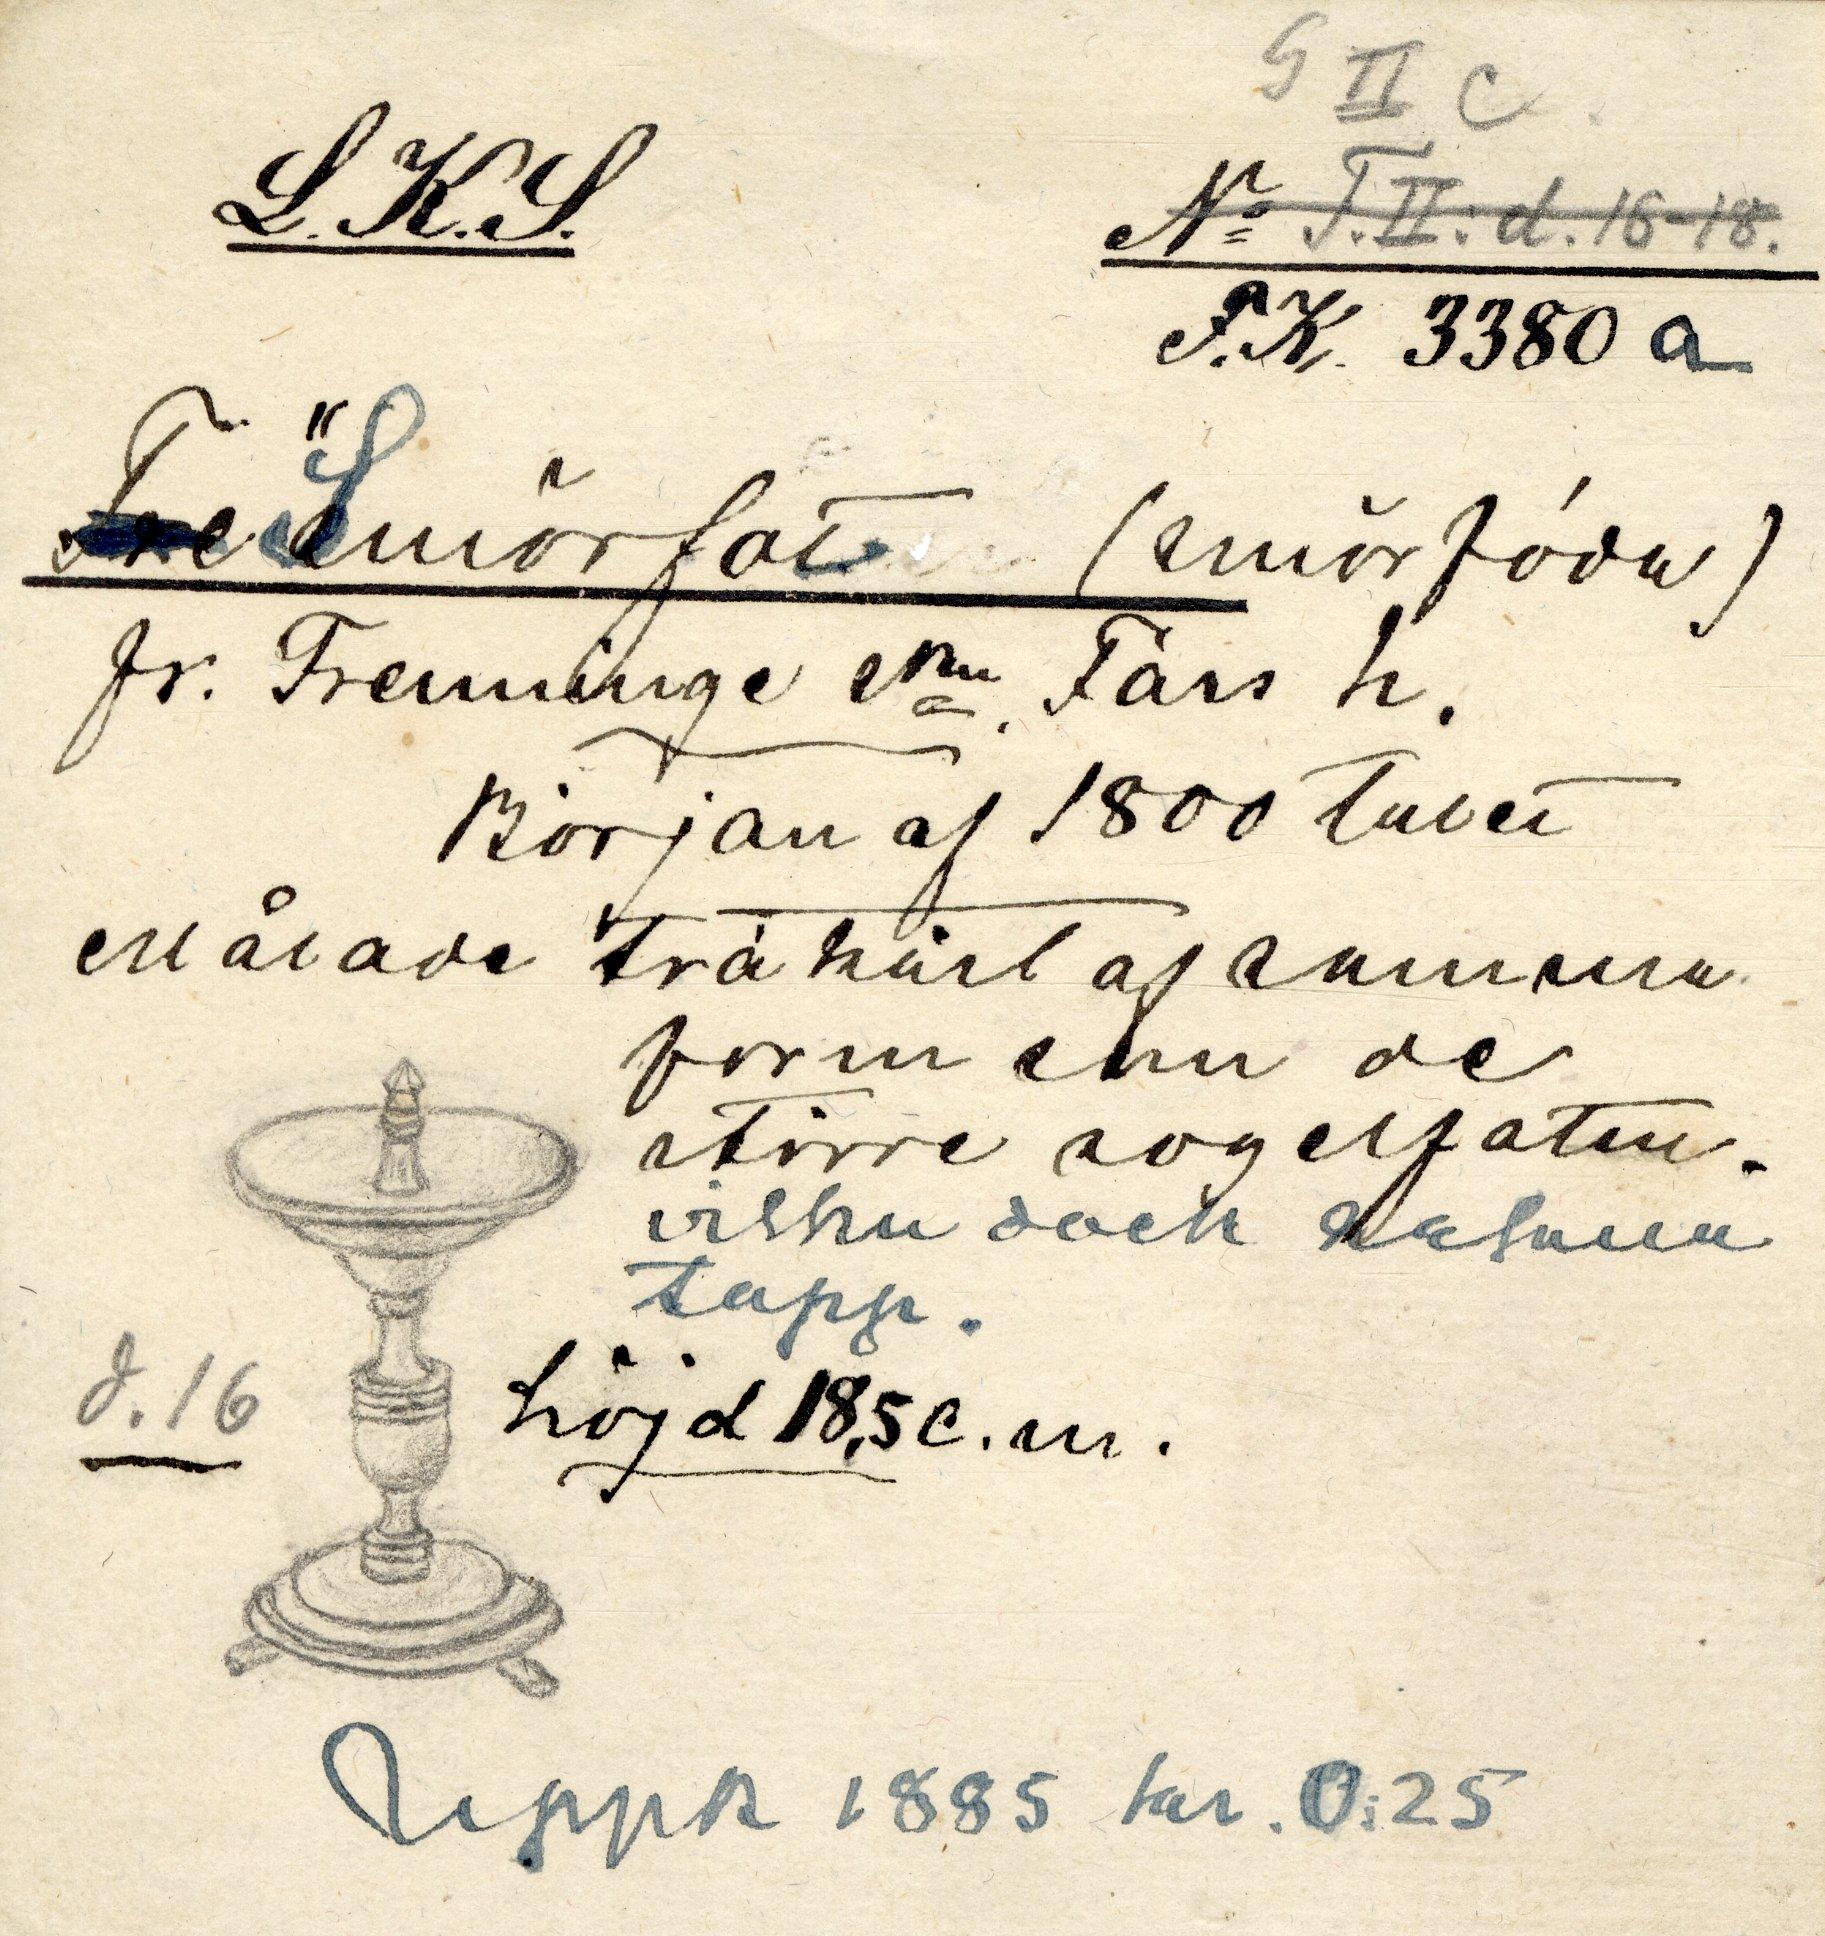 G II C
L.K.S.
No T.II: d. 16-18.
F.K. 3380 a
Tre Smörfat (smörfóda)
fr. Fremminge sn. Färs h.
Början af 1800 talet
Målade träkärl af samma
form som de
större sogelfaten.
vilka dock sakna
tapp.
d. 16
höjd 18,5 c.m.
Uppk 1885 kr. 0:25